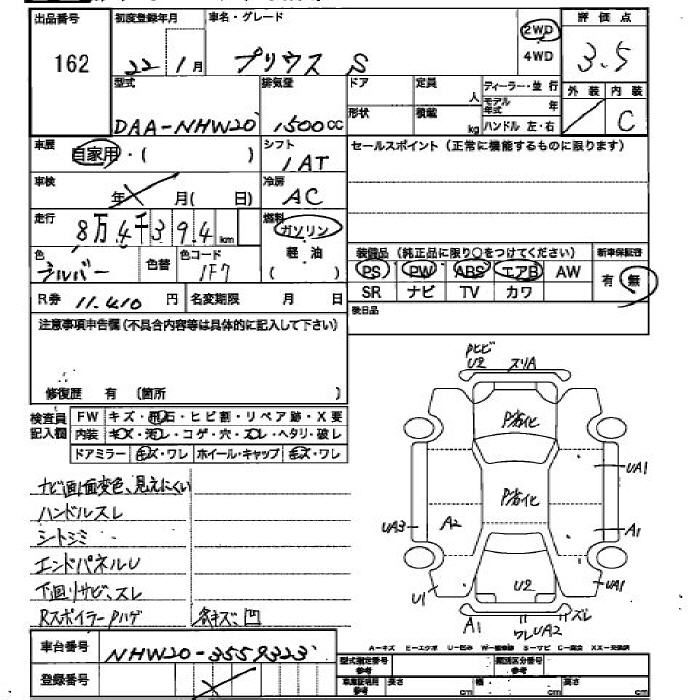 出品番号
162
初度登録年月
22 . 1 月
車名・グレード
プリウス S
2WD
4WD
評価点
3.5
外装 内装
C
型式
DAA-NHW20
排気量
1500 CC
ドア
形状
定員
人
積載
kg
ディーラー・並行
モデル年式 年
ハンドル 左・右
車歴
自家用・( )
シフト
1AT
セールスポイント(正常に機能するものに限ります)
車検
年 月( 日)
冷房
AC
走行
8万4千394 km
燃料
ガソリン
軽油
( )
色
シルバー
色替
色コード
1F7
装備品 (純正品に限り○をつけてください)
新車保証書
PS PW ABS エアB AW
SR ナビ TV カワ
有 無
R券 11.410 円
名変期限 月 日
後日品
注意事項申告欄(不具合内容等は具体的に記入して下さい)
修復歴 有 〔箇所 〕
検査員記入欄
FW キズ・飛石・ヒビ割・リペア跡・X要
内装 キズ・汚レ・コゲ・穴・スレ・ヘタリ・破レ
ドアミラー キズ・ワレ ホイール・キャップ キズ・ワレ
ナビ画面変色、見えにくい
ハンドルスレ
シートシミ
エンドパネルU
下回りサビ、スレ
Rスポイラー Pハゲ
各キズ、凹
Pヒビ
U2 スリA
P劣化
P劣化
UA1
UA3
A2
A1
U1
U2
UA1
A1
ワレUA2
ズレ
車台番号
NHW20-3559323
登録番号
A-キズ E-エクボ U-凹み W-補修跡 S-サビ C-腐食 XX-交換済
型式指定番号 参考
類別区分番号 参考
車庫証明用 参考
長さ cm
幅 cm
高さ cm